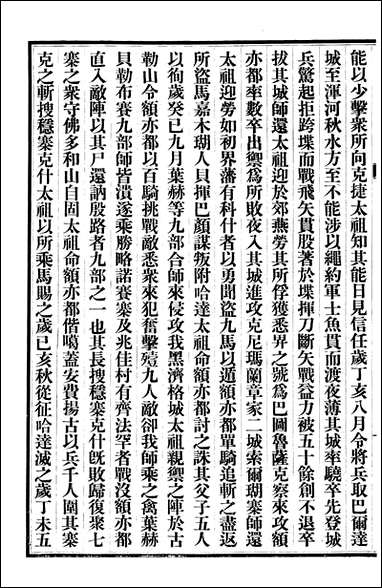 能以少擊衆所向克捷太祖知其能日見信任歲丁亥八月令將兵取巴爾達
城至渾河秋水方至不能涉以繩約軍士魚貫而渡夜薄其城率驍卒先登城
兵驚起拒跨堞而戰飛矢貫股著於堞揮刀斷矢戰益力被五十餘創不退卒
拔其城師還太祖迎於郊燕勞其所俘獲悉界之號爲巴圖魯薩克察來攻額
亦都率數卒出禦爲所敗夜入其城進攻克尼瑪蘭章家二城索爾瑚寨師還
太祖迎勞如初界藩有科什者以勇聞盜九馬以遁額亦都單騎追斬之盡返
所盜馬嘉木瑚人貝揮巴顏謀叛附哈達太祖命額亦都討之誅其父子五人
以徇歲癸巳九月葉赫等九部合師來侵攻我黑濟格城太祖親禦之陣於古
勒山令額亦都以百騎挑戰敵悉衆來犯奮擊殪九人敵卻我師乘之禽葉赫
貝勒布賽九部師皆潰遂乘勝略諾賽寨及兆佳村有齊法罕者戰沒額亦都
直入敵陣以其尸還訥殷路者九部之一也其長搜穩塞克什旣敗歸復聚七
寨之衆守佛多和山自固太祖命額亦都偕噶蓋安費揚古以兵千人圍其寨
克之斬搜穩塞克什太祖以所乘馬賜之歲己亥秋從征哈達滅之歲丁未五